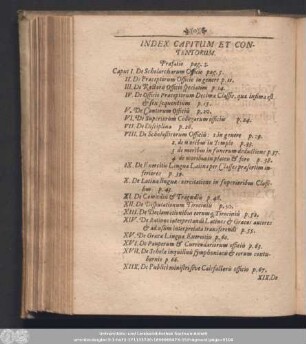 INDEX CAPITUM ET CON-
TENTORUM.
Præfatio pag. 3.
Caput I. De Scholarcharum Officio pag. 5.
II. De Præceptorum Officio in genere p. 11.
III. De Rectoris Officio speciatim p. 14.
IV. De Officio Præceptorum Decimæ Classis, quæ infima est
& sex sequentium p. 15.
V. De Cantorum Officio p. 20.
VI. De Superiorum Collegarum officiis p. 24.
VII. De Disciplina p. 26.
VIII. De Scholasticorum Officiis: 1. in genere p. 29.
2. de moribus in Templo p. 35.
3. de moribus in funerum deductione p. 37.
4. de moribus in plateis & foro p. 38.
IX. De Exercitio Linguæ Latinæ per Classes præsertim in-
feriores p. 39.
X. De Latinæ linguæ exercitatione in superioribus Classi-
bus p. 43.
XI. De Comœdiis & Tragœdiis p. 46.
XII. De Disputationum Tirociniis p. 50.
XIII. De Declamationibus earumq; Tirociniis p. 52.
XIV. De Ratione interpretandi Latinos & Græcos autores
& ad usum interpretata transferendi p. 55.
XV. De Græcæ Linguæ Exercitio p. 60.
XVI. De Pauperum & Currendariorum officio p. 63.
XVII. De Schola inquilinis symphoniacis & eorum conta-
bernio p. 66.
XIIX. De Publici ministri sive Calefactoris officio p. 67.
XIX. De